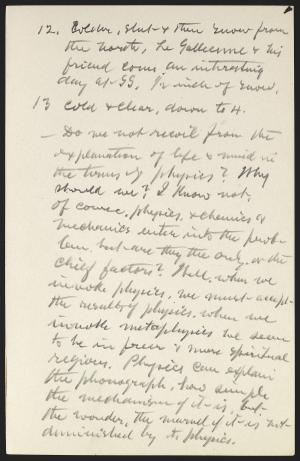 12. Colder, sleet & then snow from
the north, Le Gallienne & his
friend come, an interesting
day at SS. ½ inch of snow.
13 Cold & clear, down to 4.
— Do we not recoil from the
explanation of life & mind in
the terms of physics? Why
should we? I know not.
Of course, physics, & chemics &
mechanics enter into the prob-
lem, but are they the only, or the
chief factors? Well, when we
invoke physics, we must accept
the results of physics. when we
invoke metaphysics we seem
to be in freer & more spiritual
regions. Physics can explain
the phonograph, how simple
the mechanism of it is, but
the wonder, the marvel of it is not
diminished by its physics.